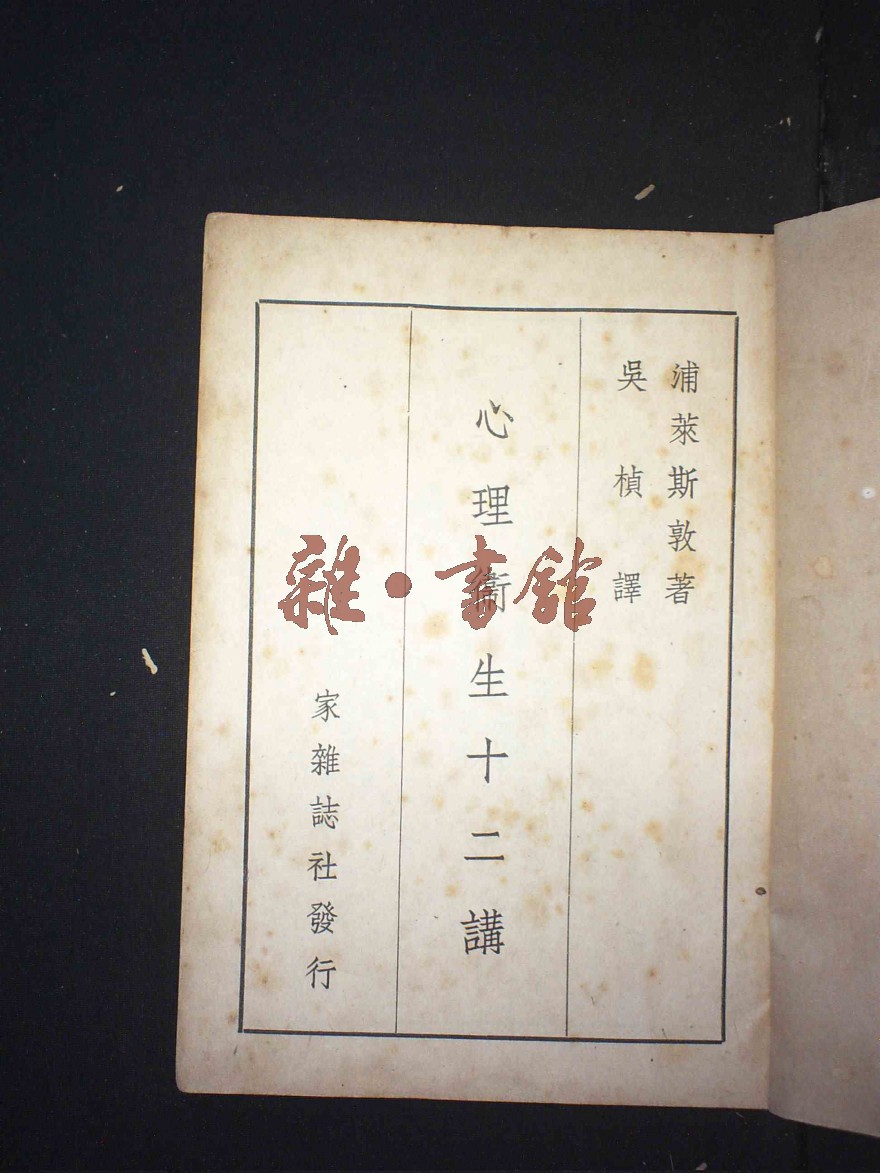 浦萊斯敦著
吳楨譯
心理衞生十二講
家雜誌社發行
雜·書館